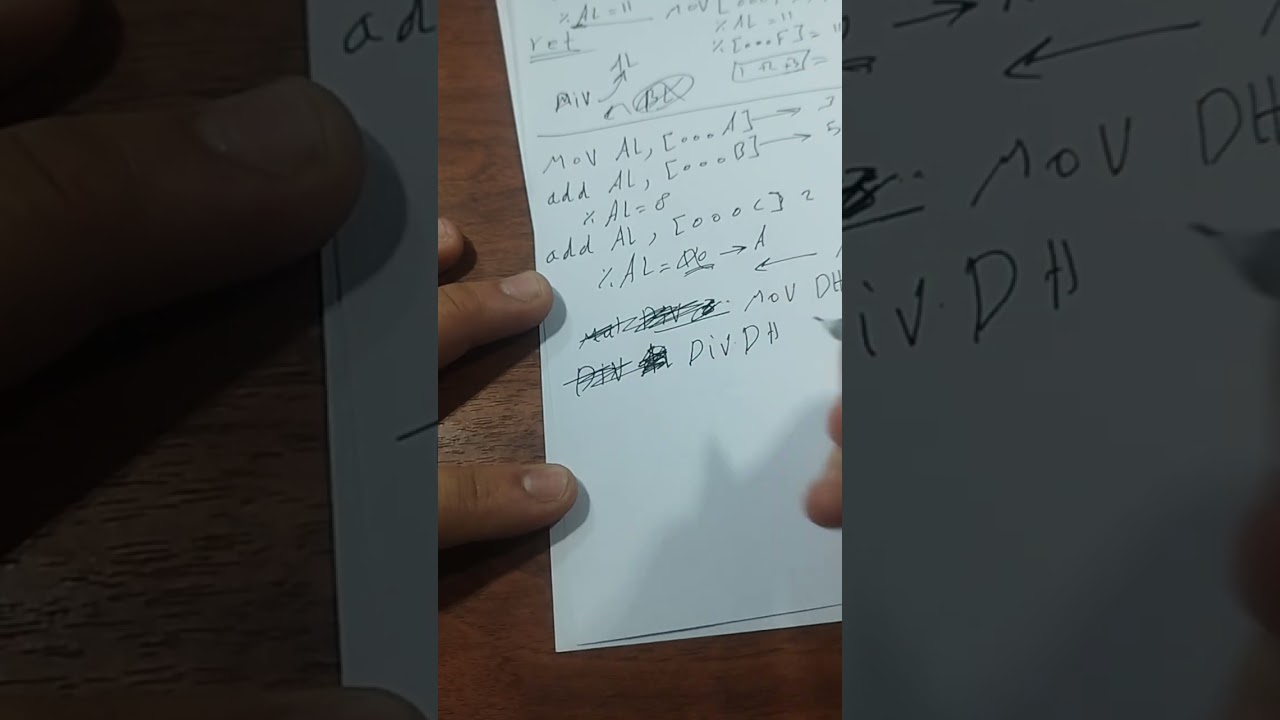 % AL = 11 MOV [000
% AL = 11
ret % [000F] =
AL 1 +2 +3 =
DiV BL
MOV AL, [000A] → 3
add AL, [000B] → 5
% AL = 8
add AL, [000C] 2
% AL = → A
MOV DH
DiV DH